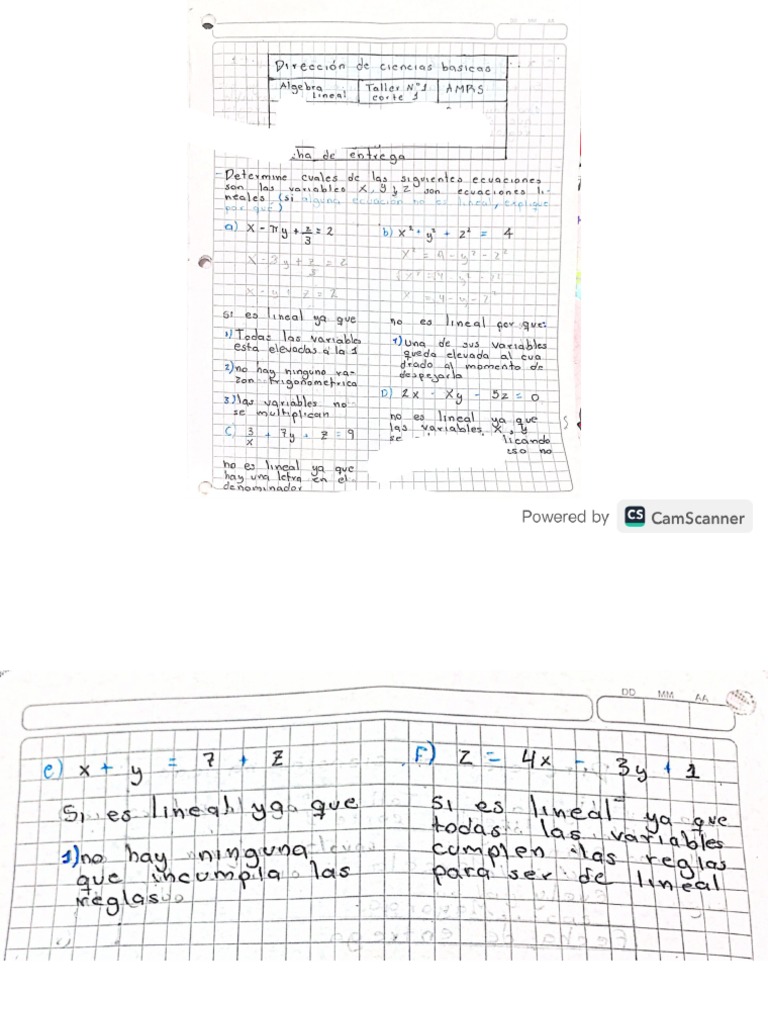 DD MM AA
Dirección de ciencias basicas
Algebra Lineal
Taller N°1 corte 1
AMRS
ha de entrega
- Determine cuales de las siguientes ecuaciones
son las variables x, y y z son ecuaciones li-
neales (si alguna ecuación no es lineal, explique
por qué)
a) x - πy + z/3 = 2
x - y + z = 2
si es lineal ya que
1) Todas las variable
está elevadas a la 1
2) no hay ninguno ra-
zon trigonometrica
3) las variables no
se multiplican
C) 3/x + 7y + z = 9
no es lineal ya que
hay una letra en el
denominador
b) x² + y² + z² = 4
x² = 4 - y² - z²
no es lineal por que:
1) Una de sus variables
queda elevada al cua
drado al momento de
despejarla
D) 2x - xy - 5z = 0
no es lineal ya que
las variables x, y
se
licando
eso no
Powered by CS CamScanner
DD MM AA
e) x + y = 7 + z
Si es lineal ya que
1) no hay ninguna
que incumpla las
reglas
F) z = 4x - 3y + 1
Si es lineal ya que
todas las variables
cumplen las reglas
para ser de lineal